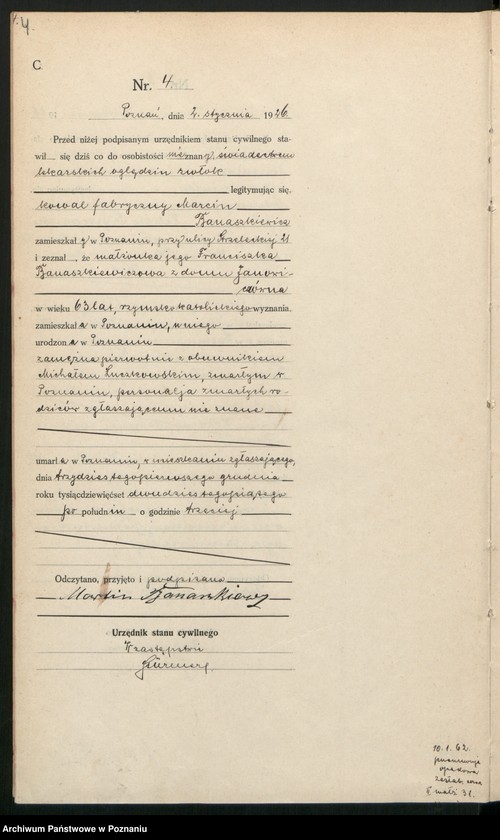 4.
C.
Nr. 4
Poznań, dnia 2. stycznia 1926
Przed niżej podpisanym urzędnikiem stanu cywilnego sta-
wił się dziś co do osobistości nieznany, świadectwem
lekarskich oględzin zwłok
legitymując się,
kowal fabryczny Marcin
Banaszkiewicz
zamieszkały w Poznaniu, przy ulicy Strzeleckiej 21
i zeznał, że małżonka jego Franciszka
Banaszkiewiczowa z domu Janowi-
czówna
w wieku 63 lat, rzymsko katolickiego wyznania,
zamieszkała w Poznaniu, u niego
urodzona w Poznaniu
zamężna pierwotnie z obuwnikiem
Michałem Łuczkowskim, zmarłym w
Poznaniu, personalja zmarłych ro-
dziców zgłaszającemu nie znane
umarła w Poznaniu, w mieszkaniu zgłaszającego,
dnia trzydziestegopierwszego grudnia
roku tysiącdziewięćset dwudziestegopiątego
po południu o godzinie trzeciej
Odczytano, przyjęto i podpisano
Martin Banaszkiewicz
Urzędnik stanu cywilnego
W zastępstwie
10.1.62.
Archiwum Państwowe w Poznaniu